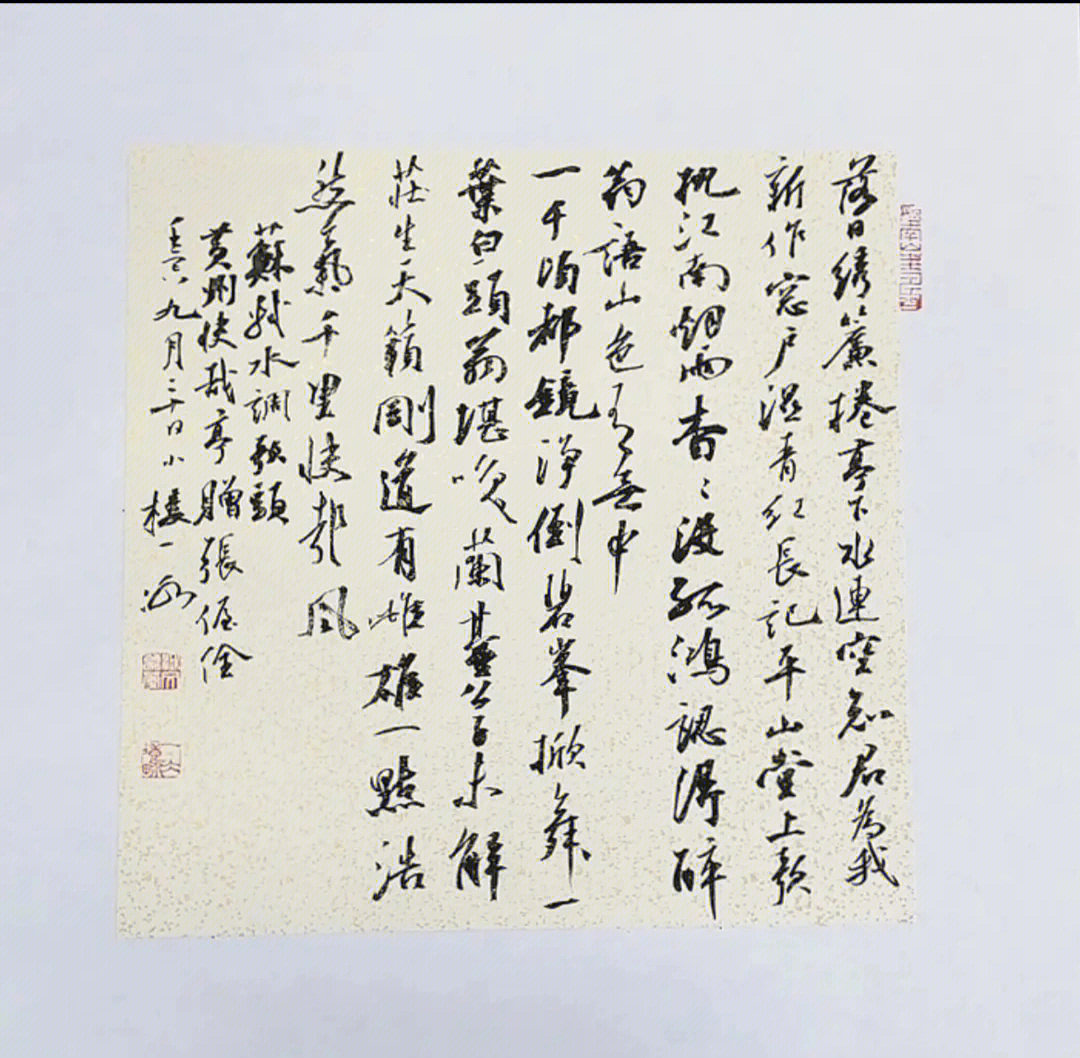 落日綉簾捲亭下水連空知君為我
新作窓戶濕青紅長記平山堂上欹
枕江南烟雨杳〻沒孤鴻認得醉
翁語山色有無中
一千頃都鏡淨倒碧峯掀舞一
葉白頭翁堪笑蘭臺公子未解
莊生天籟剛道有雌雄一點浩
然氣千里快哉風
蘇軾水調歌頭
黃州快哉亭贈張偓佺
九月二十日小樓一